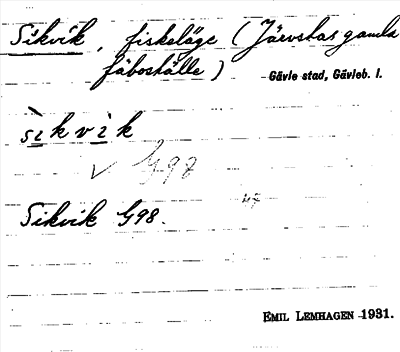 Sikvik, fiskeläge (Järvstas gamla
fäboställe) Gävle stad, Gävleb. l.
sikvik
√ G98
47
Sikvik G98.
EMIL LEMHAGEN 1931.